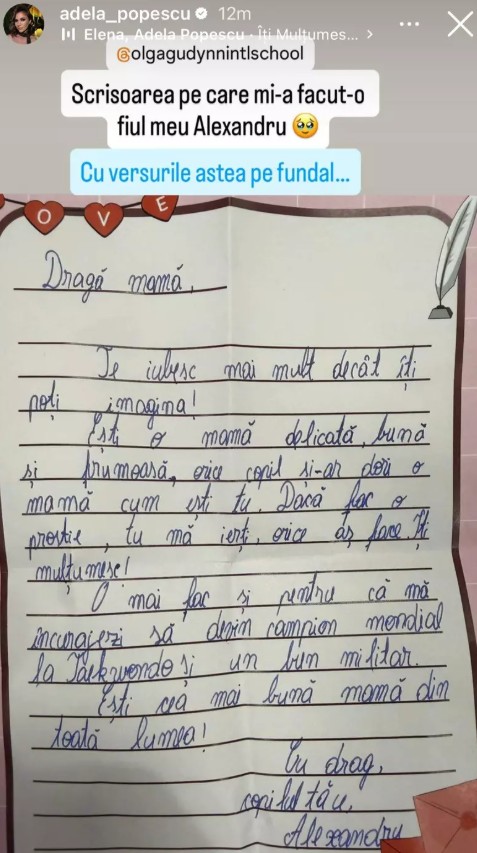 adela_popescu 12m
Elena, Adela Popescu · Îți Mulțumes... >
@olgagudynnintlschool
Scrisoarea pe care mi-a facut-o
fiul meu Alexandru 🥹
Cu versurile astea pe fundal...
O V E
Dragă mamă,
Te iubesc mai mult decât îți
poți imagina!
Ești o mamă delicată, bună
și frumoasă, orice copil și-ar dori o
mamă cum ești tu. Dacă fac o
prostie, tu mă ierți, orice aș face. Îți
mulțumesc!
O mai fac și pentru că mă
încurajezi să devin campion mondial
la Taekwondo și un bun militar.
Ești cea mai bună mamă din
toată lumea!
Cu drag,
copilul tău,
Alexandru